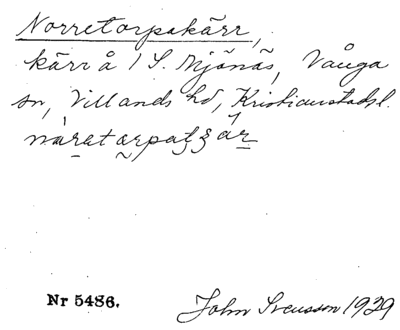 Norretorpskärr,
kärr å 1 S. Mjönäs, Vånga
sn, Villands hd, Kristianstads l.
Nr 5486.
John Svensson 1929